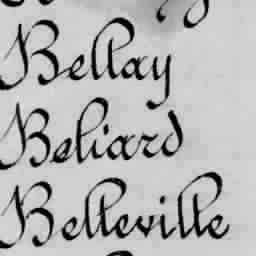 Bellay
Beliard
Belleville